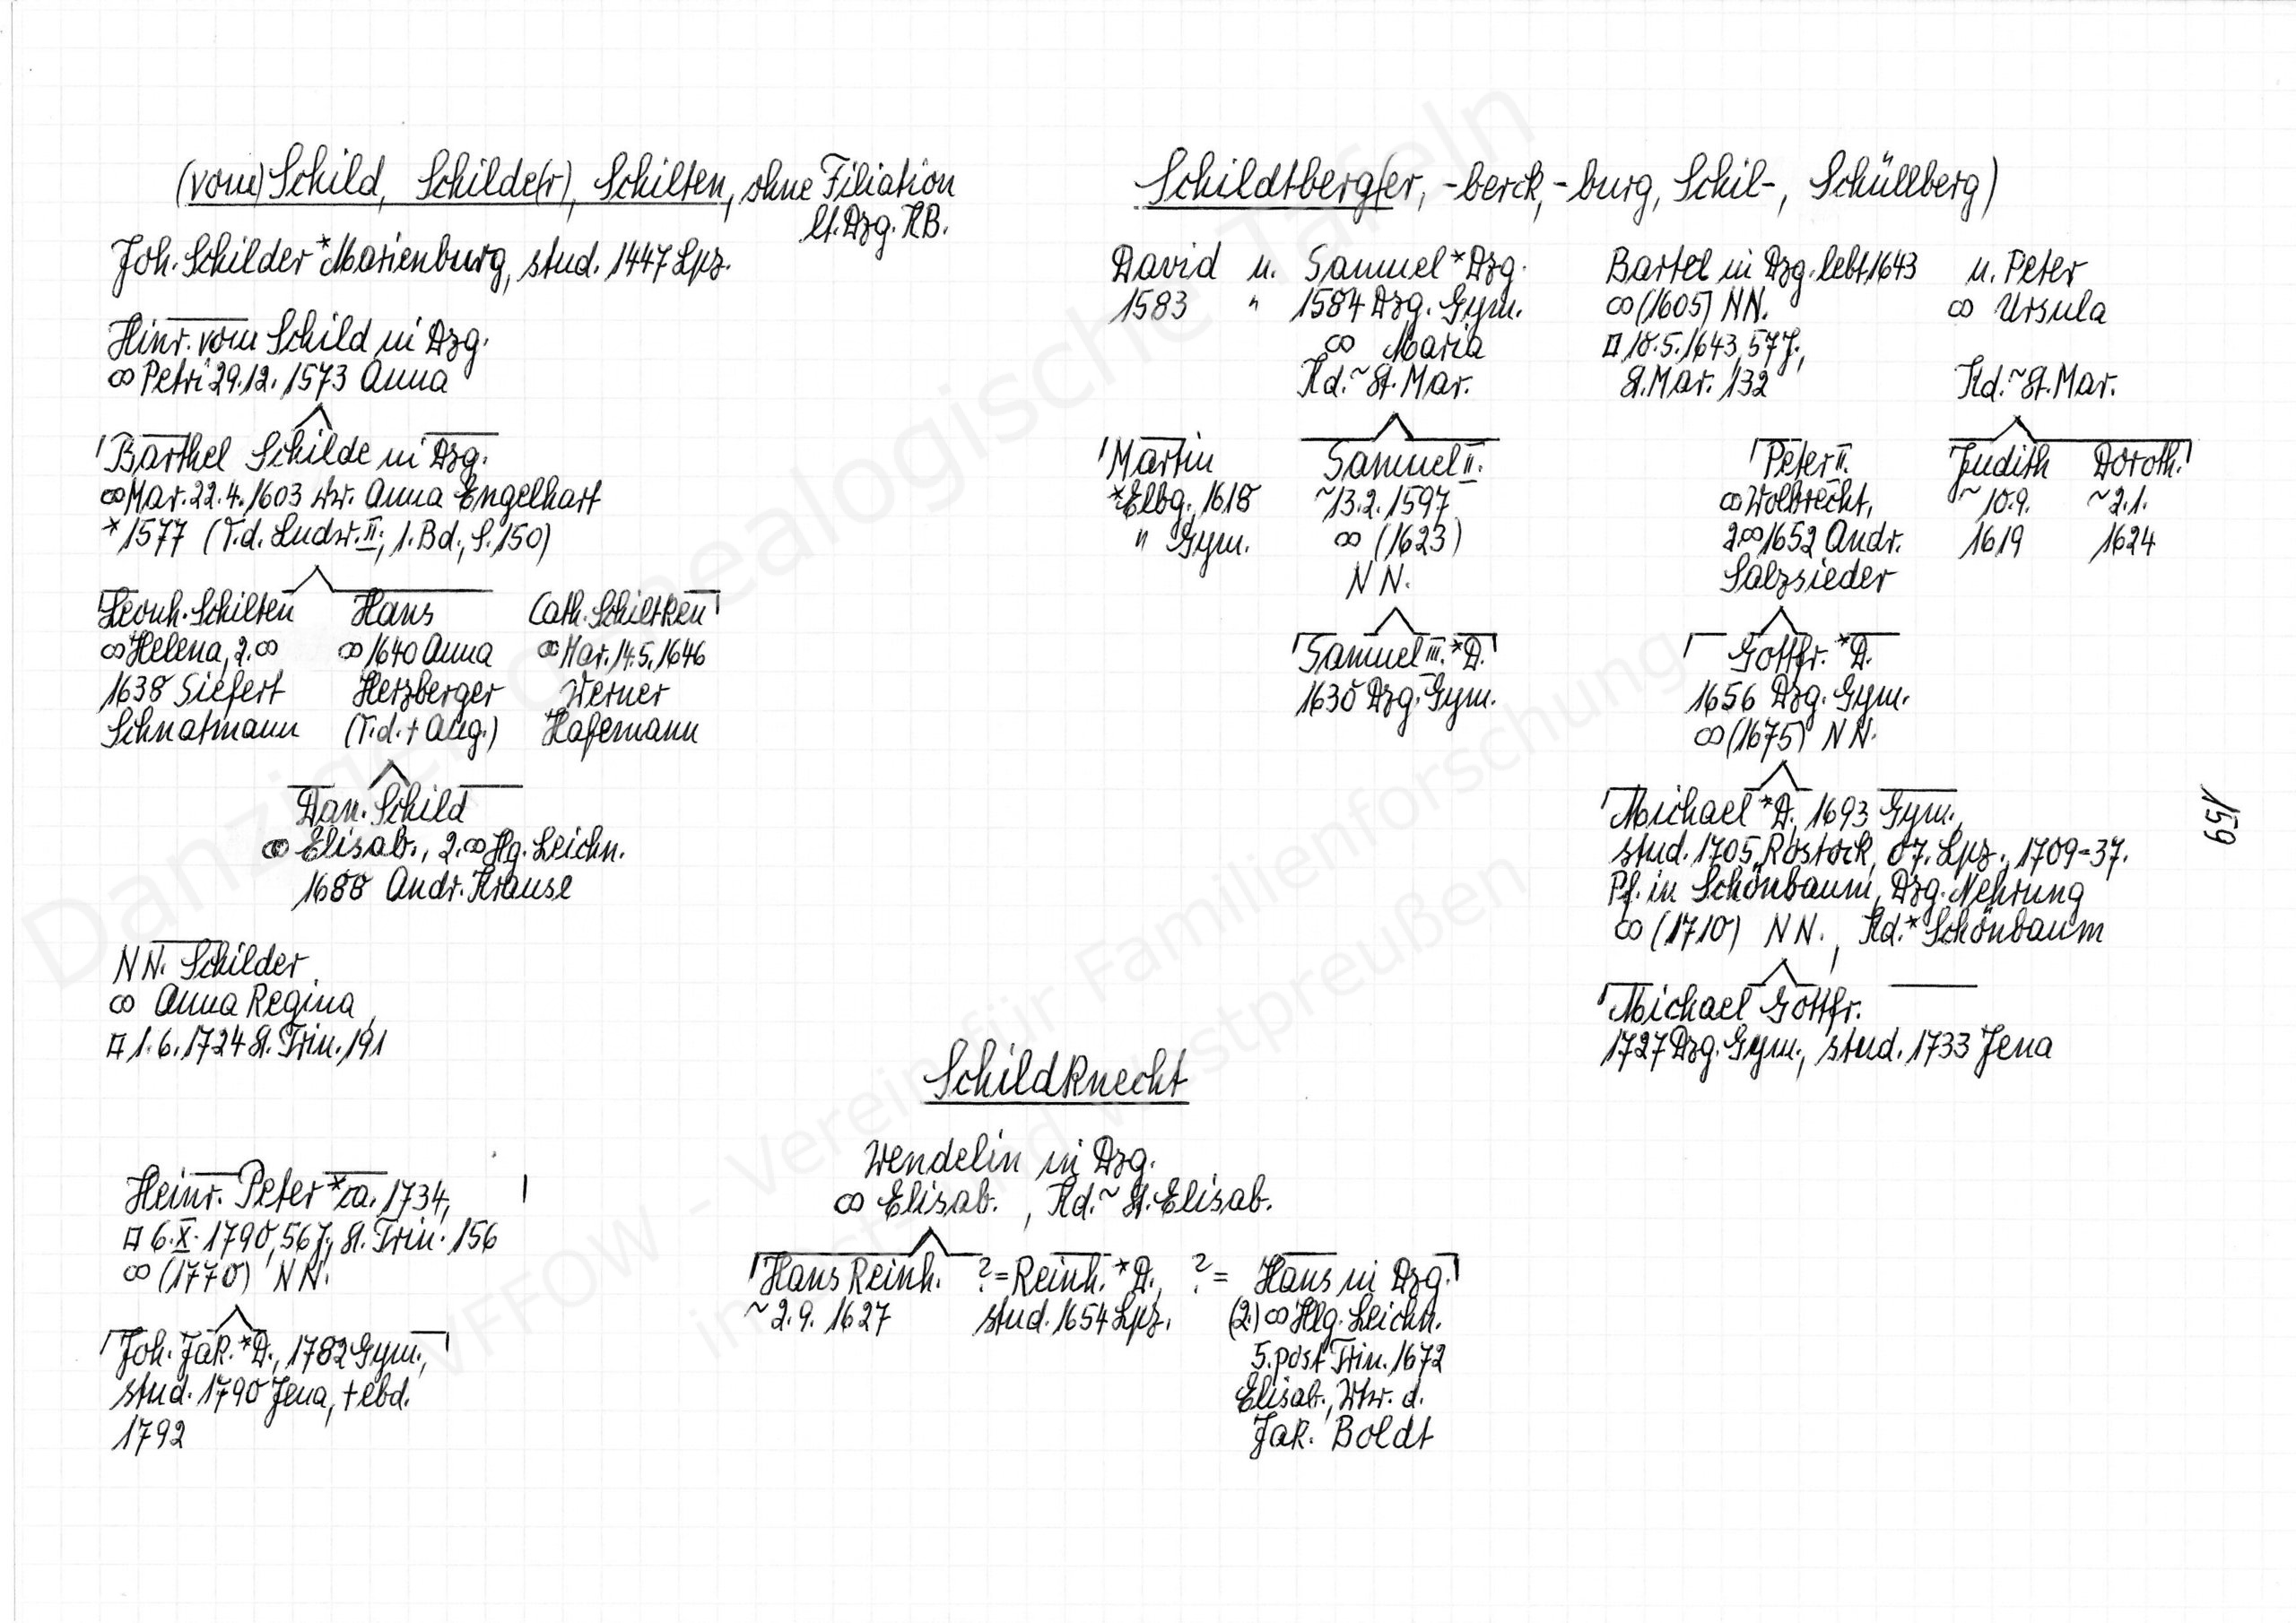 (vom) Schild, Schilde(r), Schilten, ohne Filiation
lt. Dzg. KB.
Joh. Schilder *Marienburg, stud. 1447 Lpz.
Hinr. vom Schild in Dzg.
∞ Petri 29.12. 1573 Anna
Barthel Schilde in Dzg.
∞ Mar. 22.4. 1603 Ww. Anna Engelhart
*1577 (T.d. Ludw. II., 1. Bd., S. 150)
Leonh. Schilten Hans Cath. Schiltken
∞ Helena, 2.∞ ∞ 1640 Anna ∞ Mar. 14.5. 1646
1638 Siefert Herzberger Werner
Schnatmann (T.d. + Aug.) Hafemann
Dan. Schild
∞ Elisab., 2.∞ Hg. Leichn.
1688 Andr. Krause
NN. Schilder
∞ Anna Regina,
□ 1.6. 1724 St. Trin. 191
Heinr. Peter *ca. 1734,
□ 6.X. 1790, 56 J., St. Trin. 156
∞ (1770) NN.
Joh. Jak. *D., 1782 Gym.,
stud. 1790 Jena, + ebd.
1792
Schildtberg(er, -berck, -burg, Schil-, Schüllberg)
David u. Samuel *Dzg. Bartel in Dzg. lebt 1643 u. Peter
1583 " 1584 Dzg. Gym. ∞ (1605) NN. ∞ Ursula
∞ Maria □ 18.5. 1643, 57 J.,
Kd. ~ St. Mar. St. Mar. 132 Kd. ~ St. Mar.
Martin Samuel II. Peter II. Judith Doroth.
*Elbg., 1618 ~13.2. 1597 ∞ Wolbrecht, ~ 10.9. ~ 2.1.
" Gym. ∞ (1623) 2.∞ 1652 Andr. 1619 1624
NN. Salzsieder
Samuel III. *D. Gottfr. *D.
1630 Dzg. Gym. 1656 Dzg. Gym.
∞ (1675) NN.
Michael *D., 1693 Gym.,
stud. 1705 Rostock, 07. Lpz., 1709-37.
Pf. in Schönbaum, Dzg. Nehrung
∞ (1710) NN., Kd. *Schönbaum
Michael Gottfr.
1727 Dzg. Gym., stud. 1733 Jena
159
Schildknecht
Wendelin in Dzg.
∞ Elisab., Kd. ~ St. Elisab.
Hans Reinh. ?= Reinh. *D., ?= Hans in Dzg.
~ 2.9. 1627 stud. 1654 Lpz. (2.) ∞ Hlg. Leichn.
5. post Trin. 1672
Elisab., Wwr. d.
Jak. Boldt
Danziger genealogische Tafeln
VFFOW - Verein für Familienforschung
in Ost- und Westpreußen